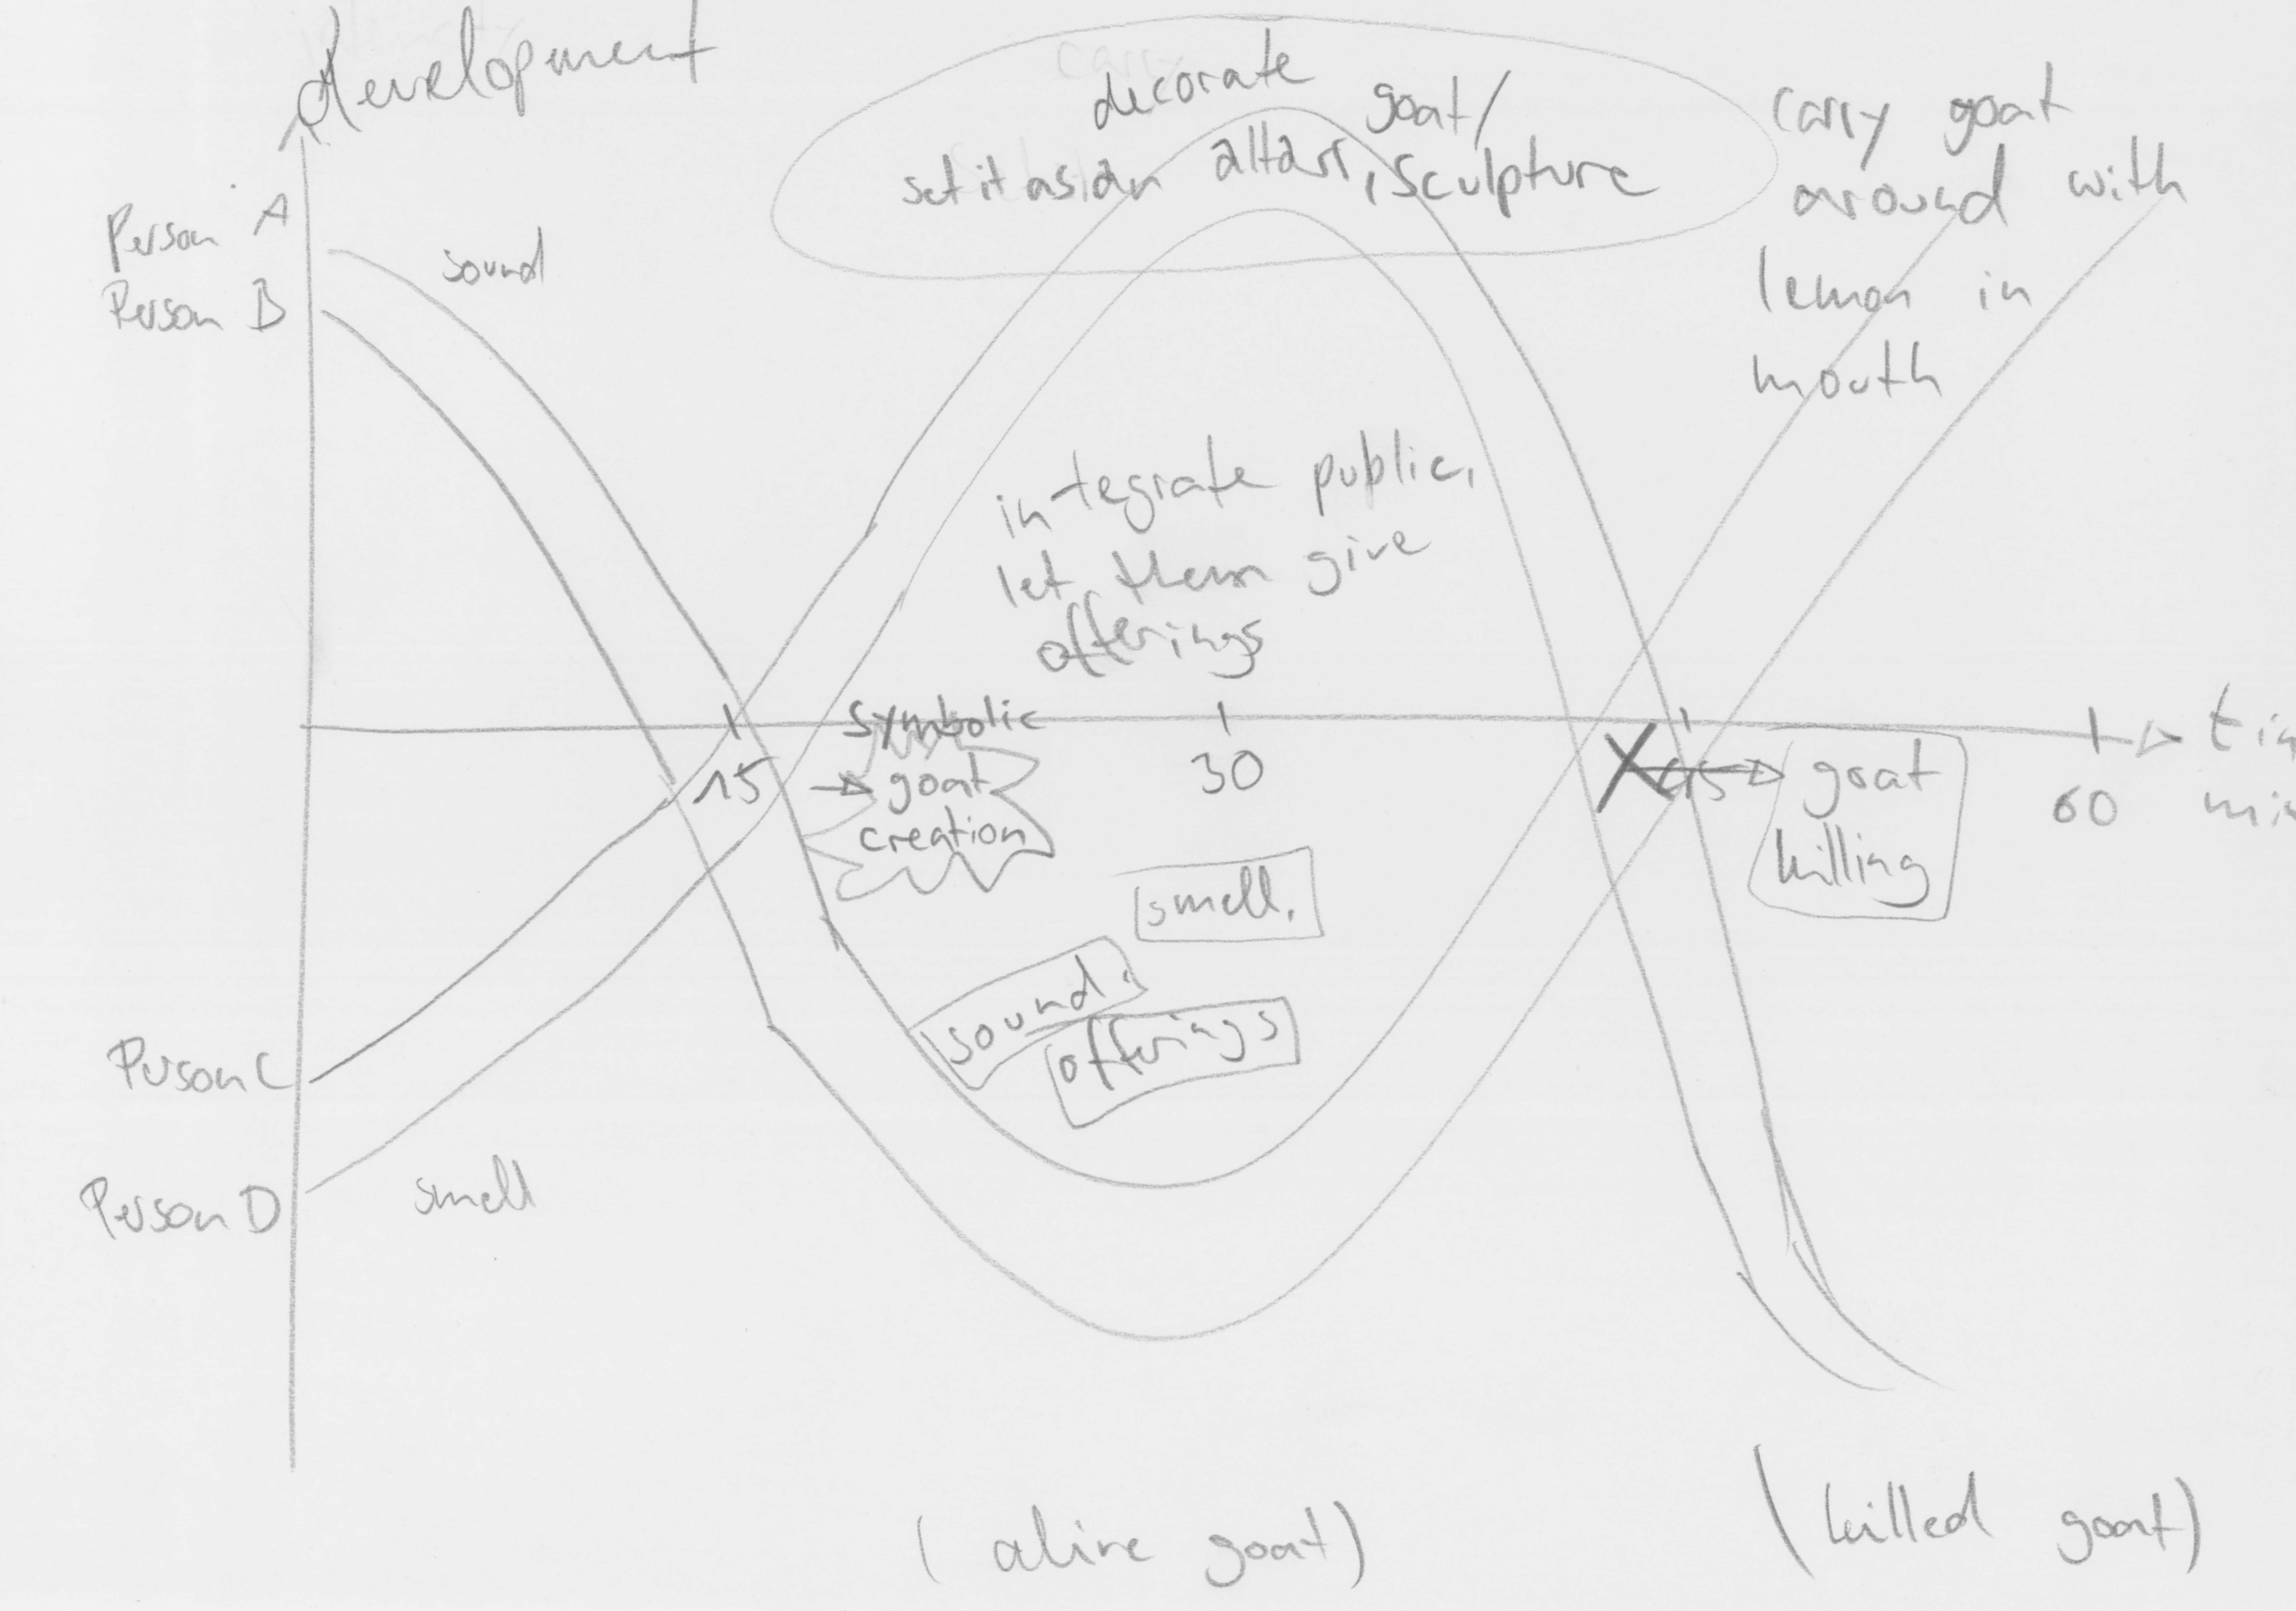 development
decorate goat/
set it as an altar, sculpture
carry goat
around with
lemon in
mouth
Person A
Person B
sound
integrate public,
let them give
offerings
symbolic
→ goat
creation
15
30
45
60
t in
min
goat
killing
smell.
sound.
offerings
Person C
Person D
smell
(alive goat)
(killed goat)